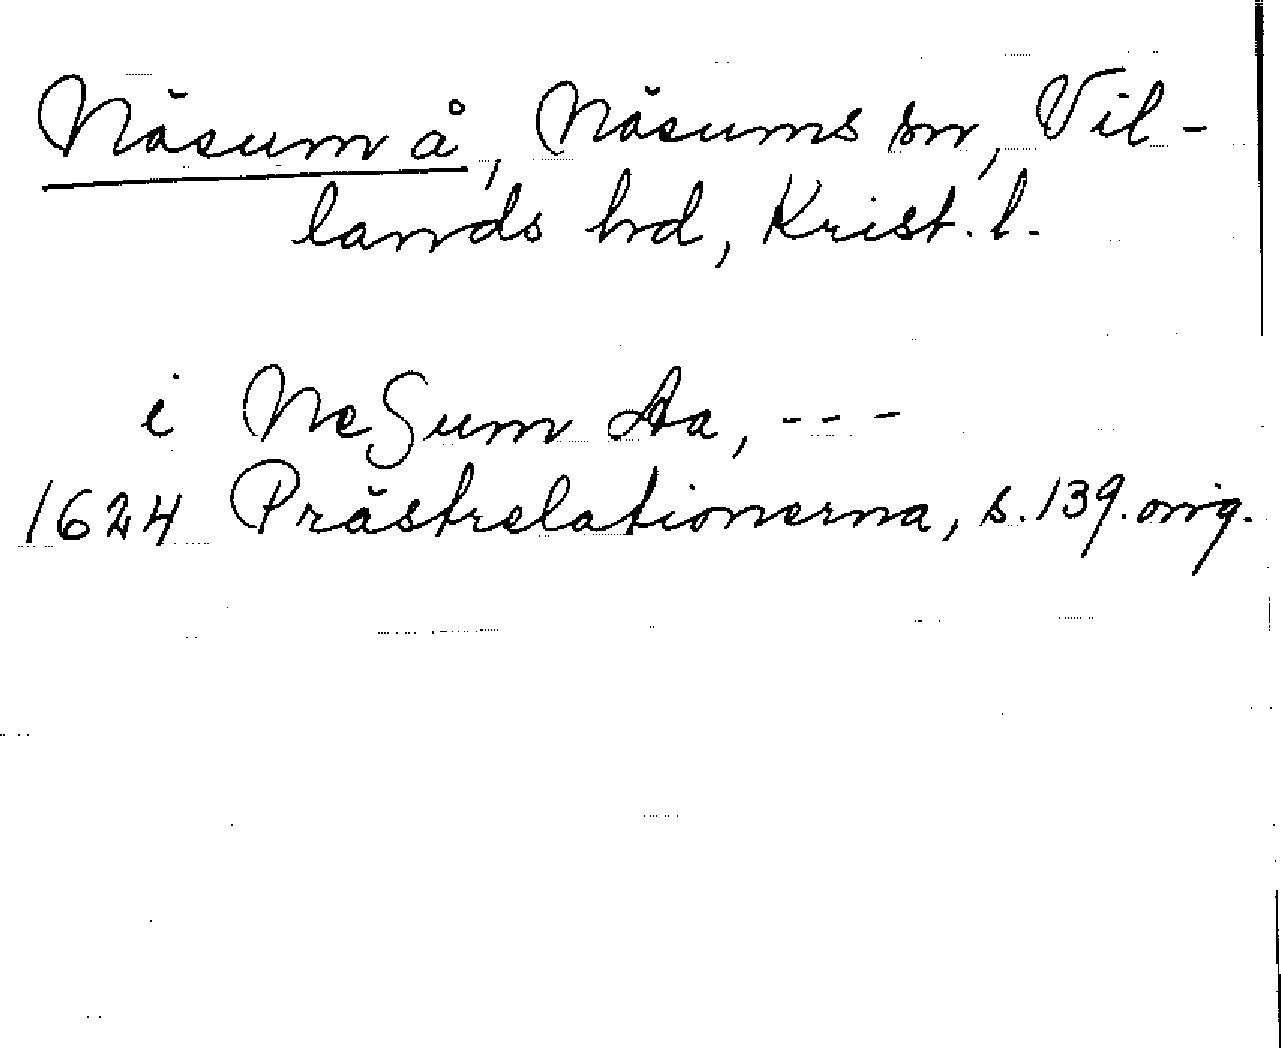 Näsum å, Näsums sn, Vil-
lands hd, Krist. l.
i NeSum Aa, ---
1624 Prästrelationerna, s. 139. orig.